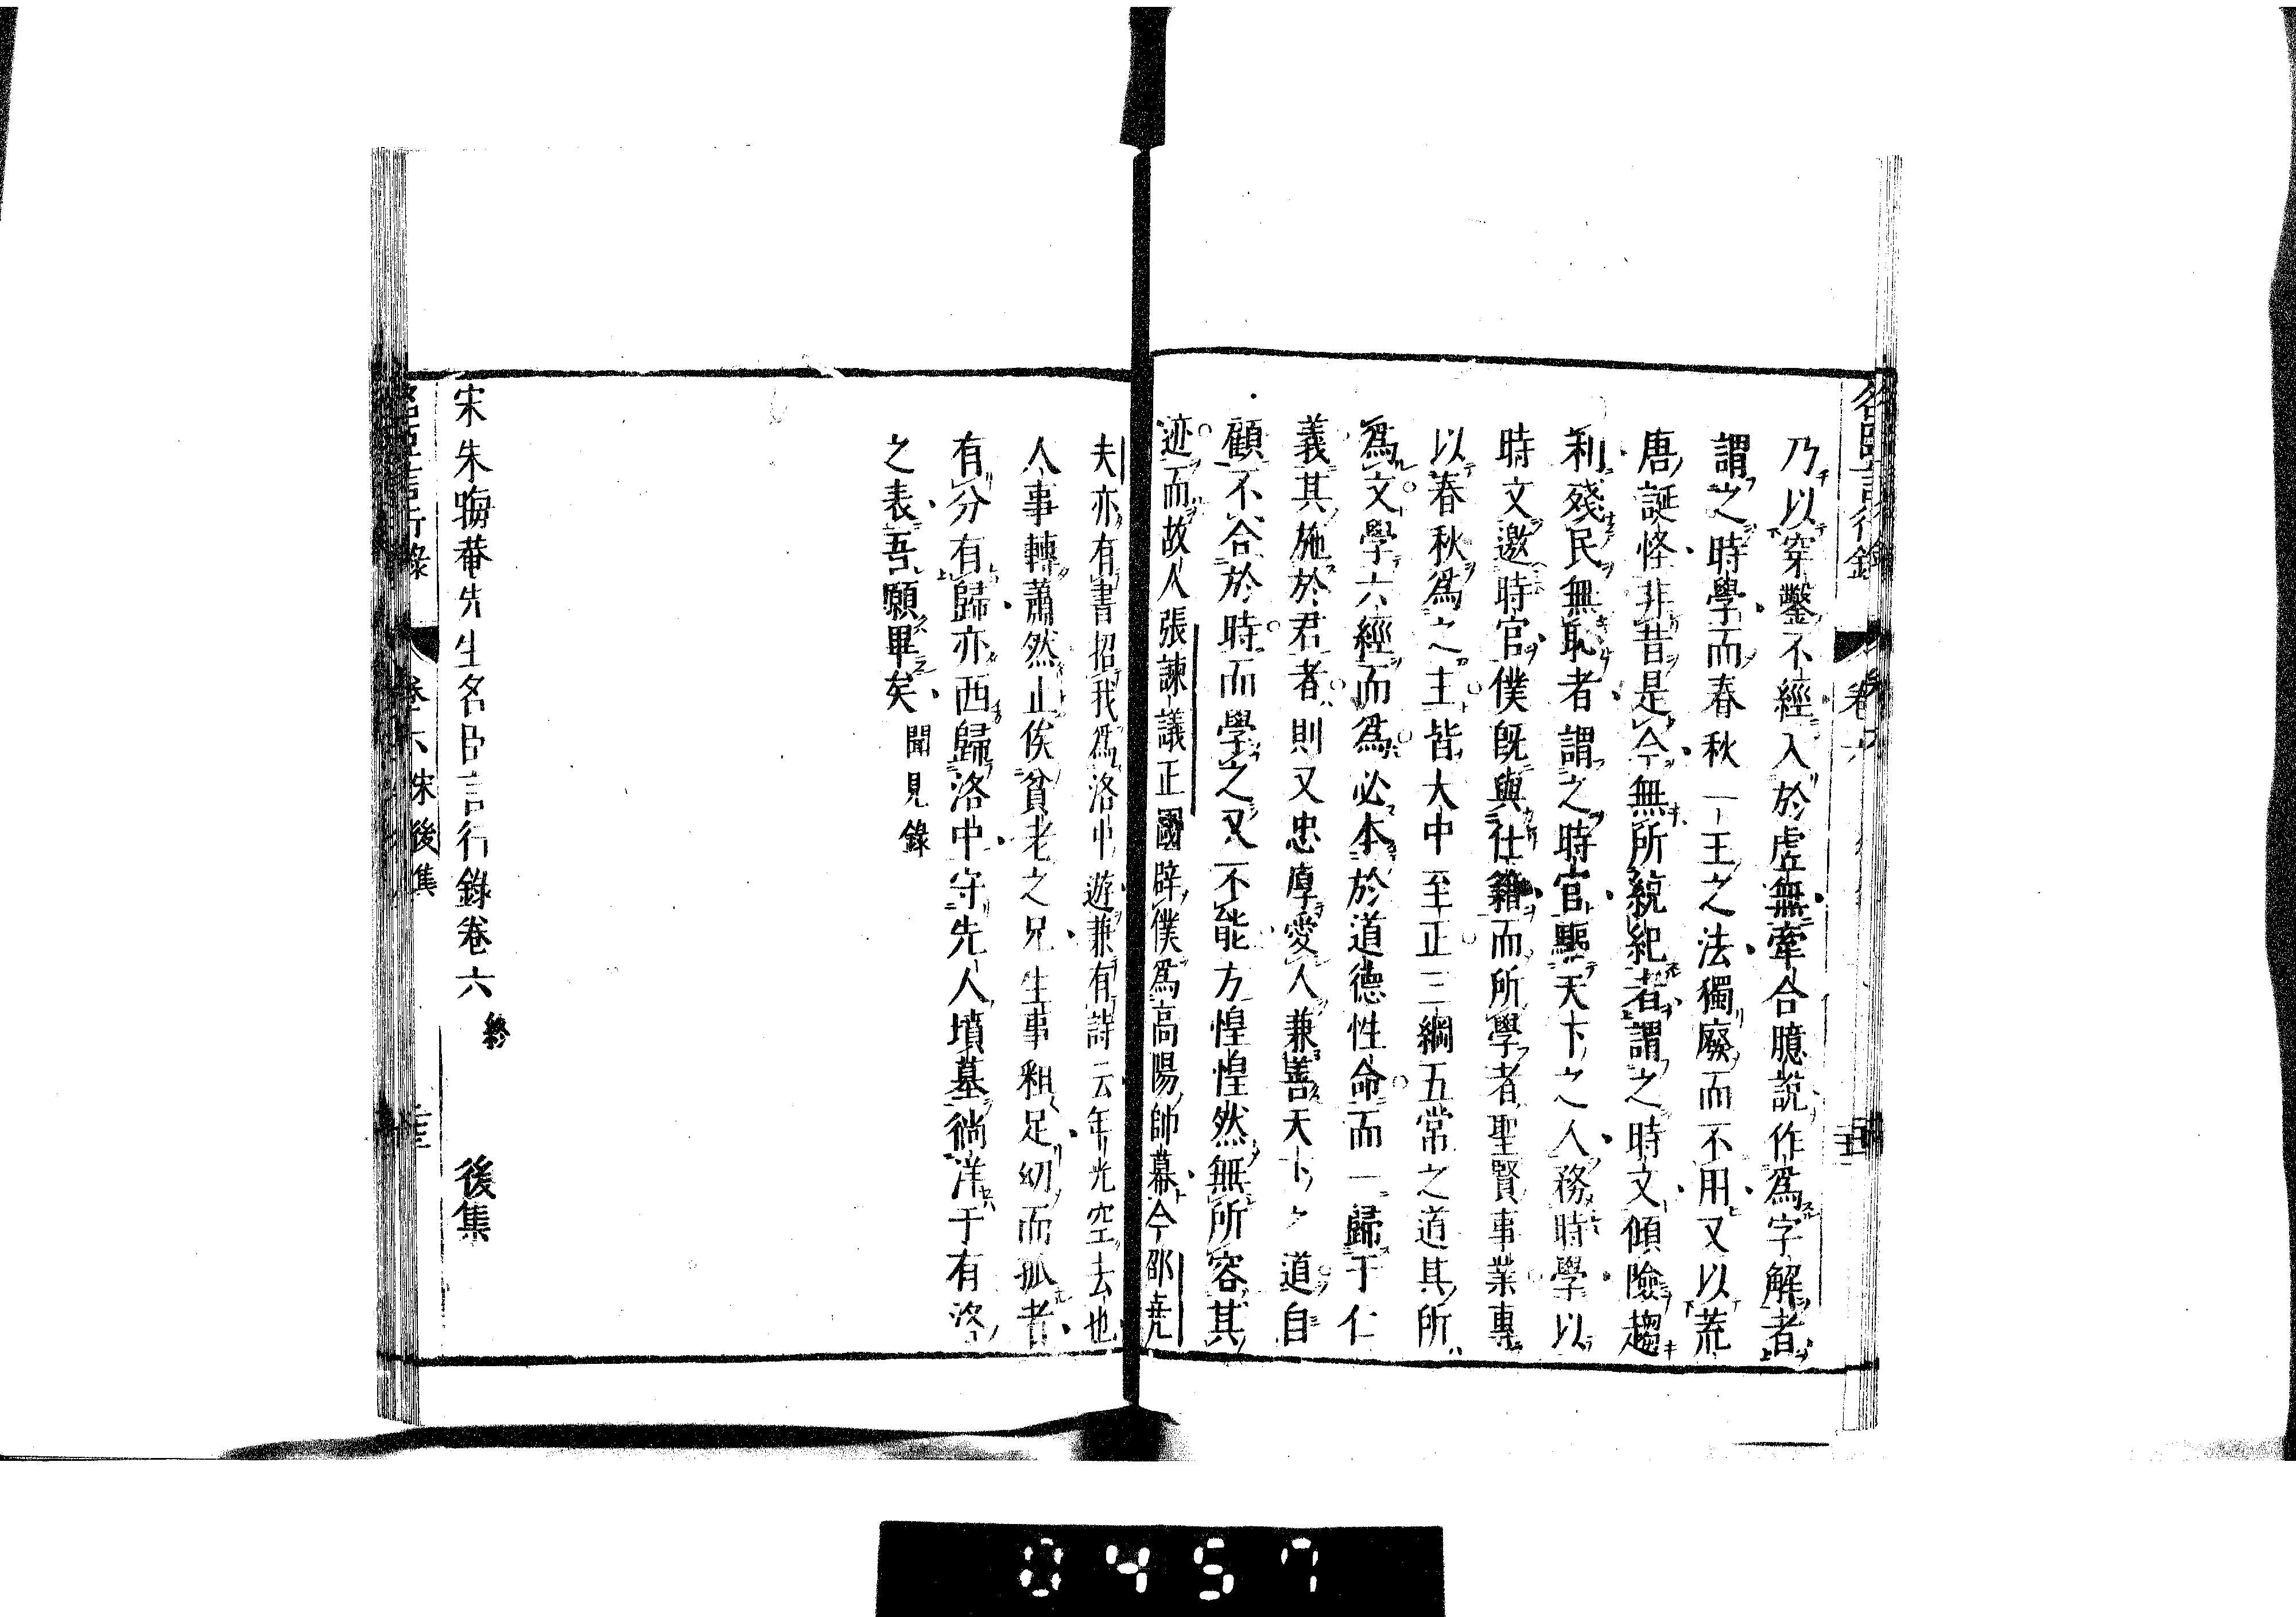 名臣言行錄 卷六
乃以穿鑿不經入於虛無牽合臆說作爲字解者
謂之時學而春秋一王之法獨廢而不用又以荒
唐誕恠非昔是今無所統紀者謂之時文傾險趨
利殘民無恥者謂之時官驅天下之人務時學以
時文邀時官僕既與仕籍而所學者聖賢事業專
以春秋爲之主皆大中至正三綱五常之道其所
爲文學六經而爲必本於道德性命而一歸于仁
義其施於君者則又忠厚愛人兼善天下之道自
顧不合於時而學之又不能方惶惶然無所容其
迹而故人張諫議正國辟僕爲高陽帥幕今邵堯
夫亦有書招我爲洛中遊兼有詩云年光空去也
人事轉蕭然止俟貧老之兄生事粗足幼而孤者
有分有歸亦西歸洛中守先人墳墓徜洋于有洛
之表吾願畢矣 聞見錄
宋朱晦菴先生名臣言行錄卷六終 後集
名臣言行錄 卷六 宋後集
0457